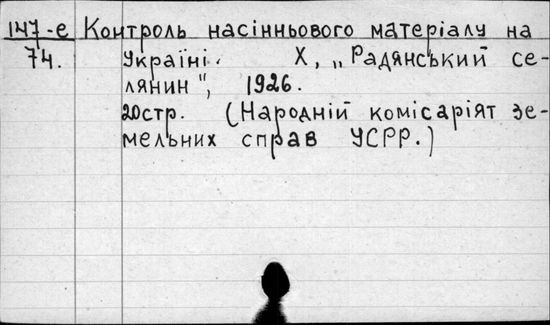 147-е Контроль насінньового матеріалу на
74. Україні. Х, „Радянський се-
лянин", 1926.
20стр. (Народній комісаріят зе-
мельних справ УСРР.)